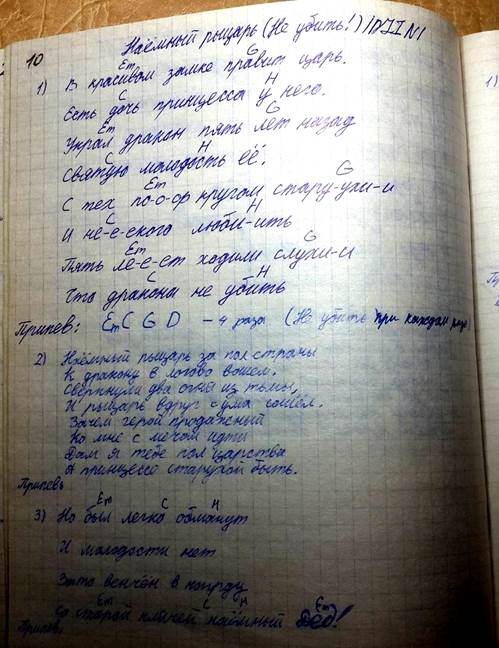 10
Наёмный рыцарь (Не убить!) /DJIN/
Em G
1) В красивом замке правит царь.
C H
Есть дочь принцесса у него.
Em G
Украл дракон пять лет назад
C H
Святую молодость её.
Em G
С тех по-о-ор кругом стару-ухи-и
C H
И не-е-еского люби-ить
Em G
Пять ле-е-ет ходили слухи-и
C H
Что дракона не убить
Припев: Em C G D - 4 раза (Не убить при каждом разе)
2) Наёмный рыцарь за пол страны
К дракону в логово вошел.
Сверкнули два огня из тьмы,
И рыцарь вдруг с ума сошёл.
Зачем герой продажный
Ко мне с мечом идти
Дам я тебе пол царства
А принцессе старухой быть.
Припев
Em C H
3) Но был легко обманут
И молодости нет
Зато венчён в награду
Em C H Em
Со старой клячей наёмный Дед!
Припев.